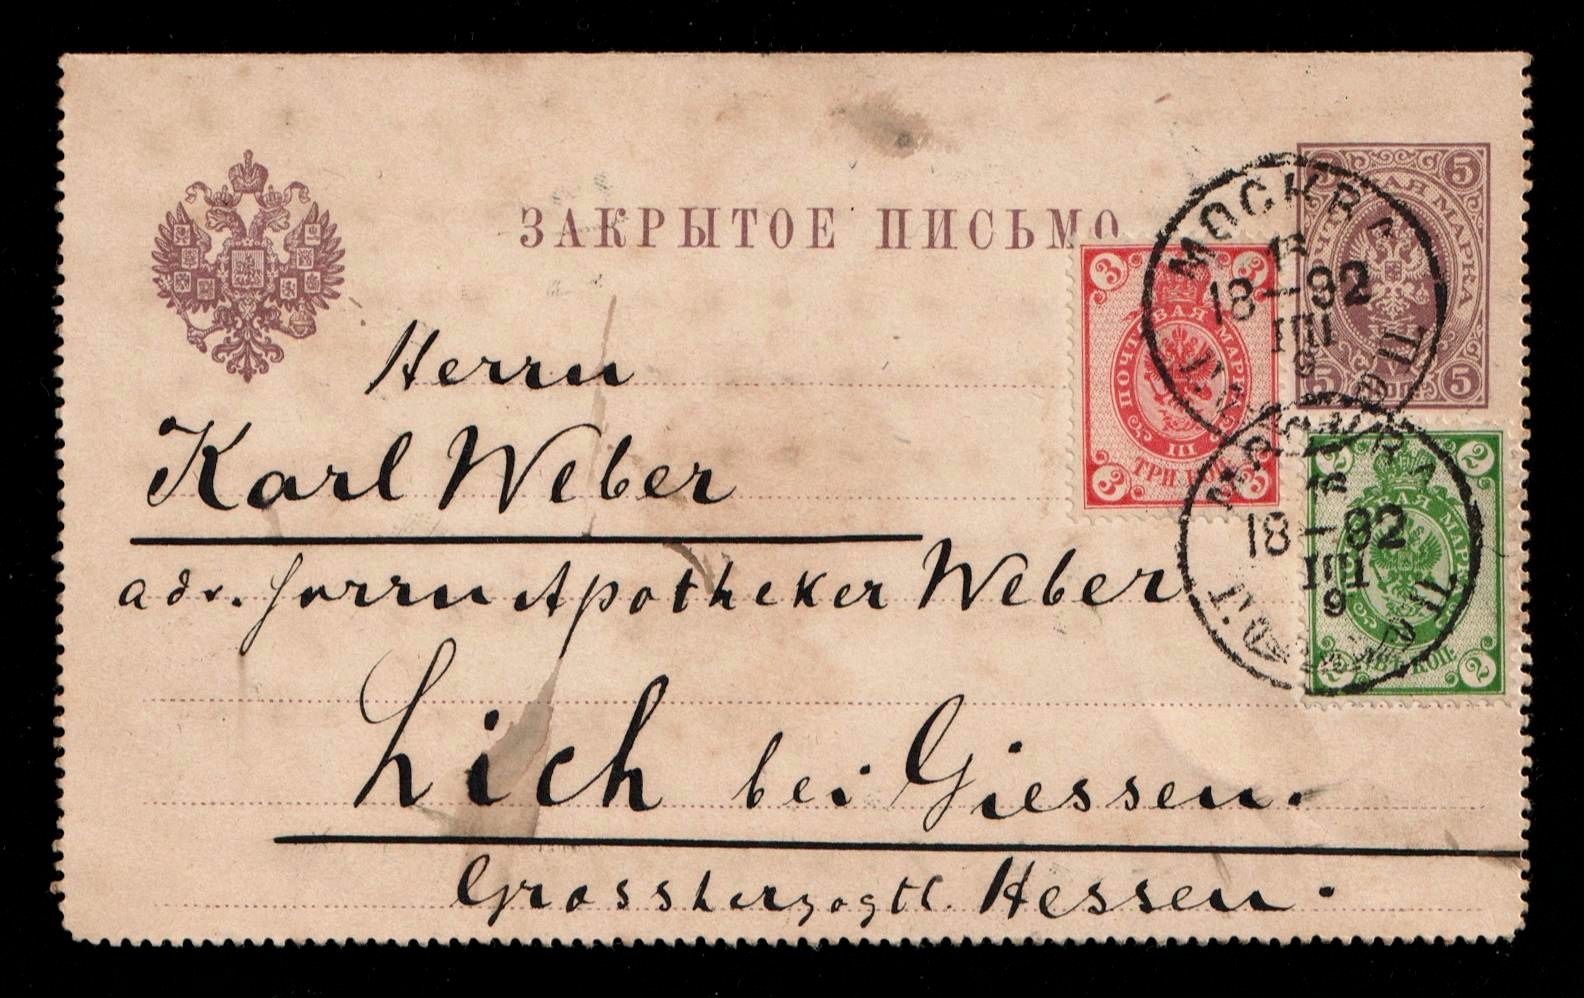 ЗАКРЫТОЕ ПИСЬМО
Herrn
Karl Weber
adr. Herrn Apotheker Weber
Lich bei Giessen.
Grossherzogtl. Hessen.
5 5
ПОЧТОВАЯ МАРКА
5 5
3 3
ПОЧТОВАЯ МАРКА
III
3 ТРИ КОП 3
2 2
МАРКА
2 ДВѢ КОП 2
МОСКВА
18—92
III
9
МОСКВА
18—92
III
9